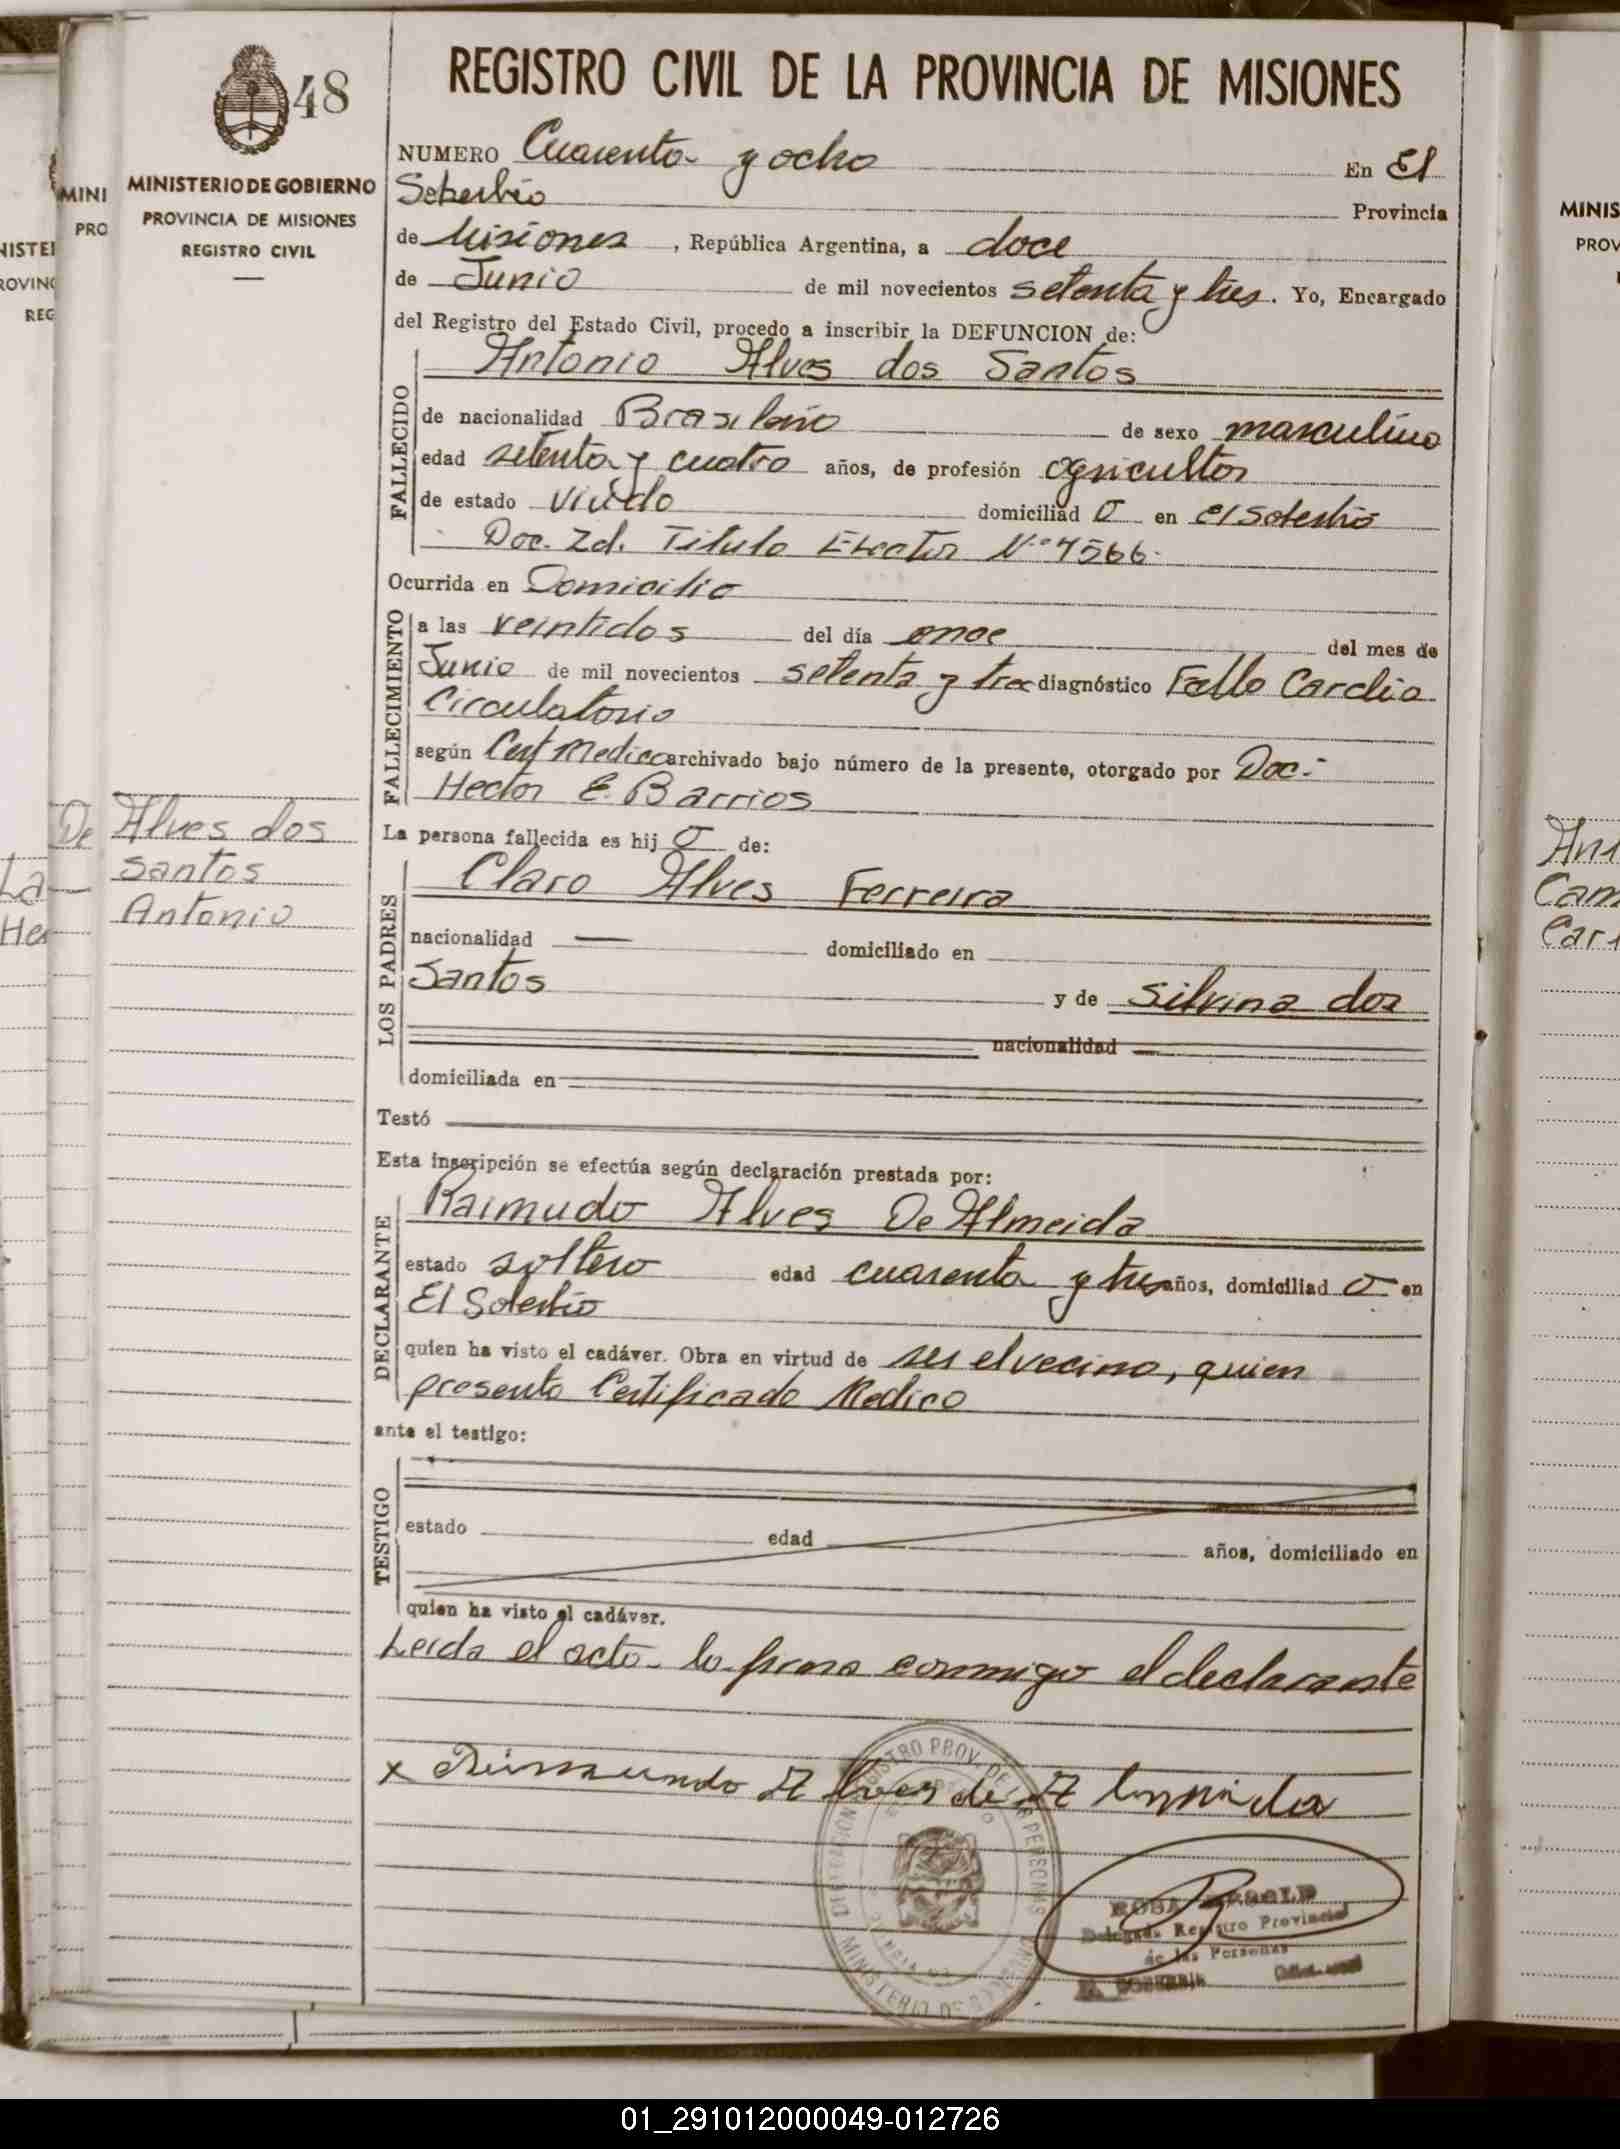 48
REGISTRO CIVIL DE LA PROVINCIA DE MISIONES
MINISTERIO DE GOBIERNO
PROVINCIA DE MISIONES
REGISTRO CIVIL
NUMERO Cuarenta y ocho En El
Soberbio Provincia
de Misiones, República Argentina, a doce
de Junio de mil novecientos setenta y tres. Yo, Encargado
del Registro del Estado Civil, procedo a inscribir la DEFUNCION de:
FALLECIDO
Antonio Alves dos Santos
de nacionalidad Brasileño de sexo masculino
edad setenta y cuatro años, de profesión agricultor
de estado viudo domiciliad o en El Soberbio
Doc. Id. Titulo Elector N.º 7566.
Ocurrida en Domicilio
FALLECIMIENTO
a las veintidos del día once del mes de
Junio de mil novecientos setenta y tres diagnóstico Fallo Cardio
Circulatorio
según Cert Medico archivado bajo número de la presente, otorgado por Doc.-
Hector E. Barrios
La persona fallecida es hij o de:
LOS PADRES
Claro Alves Ferreira
nacionalidad — domiciliado en
Santos y de Silvina dos
nacionalidad
domiciliada en
Testó
Esta inscripción se efectúa según declaración prestada por:
DECLARANTE
Raimudo Alves De Almeida
estado soltero edad cuarenta y tres años, domiciliad o en
El Soberbio
quien ha visto el cadáver. Obra en virtud de ser el vecino, quien
presento Certificado Medico
ante el testigo:
TESTIGO
estado edad años, domiciliado en
quien ha visto el cadáver.
Leida el acta lo firma conmigo el declarante
x Raimundo Alves de Almeida
ROSA
Delegada Registro Provincial
de las Personas
EL SOBERBIO
Alves dos
Santos
Antonio
01_291012000049-012726